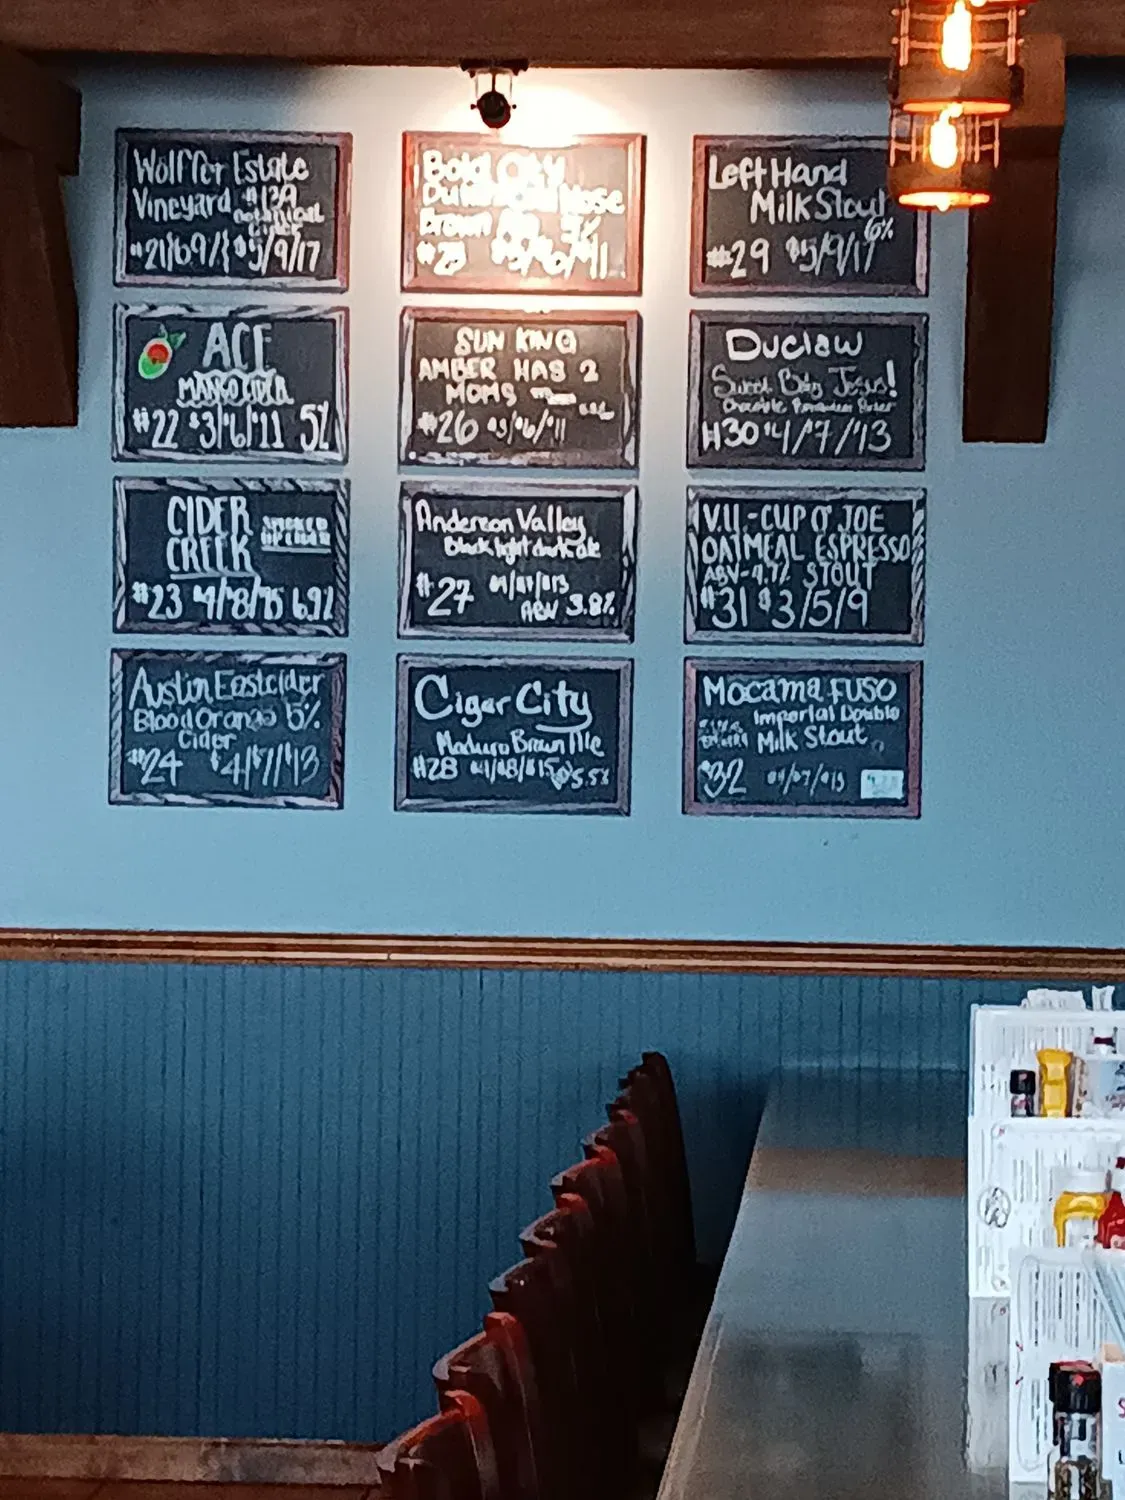 Wolffer Estate
Vineyard #139
Botanical
Cider
#21 69/ $5/9/17
Bold City
Duke's Cold Nose
Brown Ale
#25
Left Hand
Milk Stout
6%
#29 $5/9/17
ACE
MANGO CIDER
#22 $3/6/11 5%
SUN KING
AMBER HAS 2
MOMS
#26 $3/$6/$11
Duclaw
Sweet Baby Jesus!
Chocolate Peanut Butter
#30 $4/$7/$13
CIDER
CREEK
#23 4/8/15 6.9%
Anderson Valley
Black light dark ale
#27
ABV 3.8%
V.U.-CUP O' JOE
OATMEAL ESPRESSO
STOUT
#31 $3/5/9
Austin Eastcider
Blood Orange 5%
Cider
#24 $4/$7/$13
Cigar City
Maduro Brown Ale
#28 $4/$8/$15 5.5%
MOCAMA FUSO
Imperial Double
Milk Stout
32 $4/$7/$13